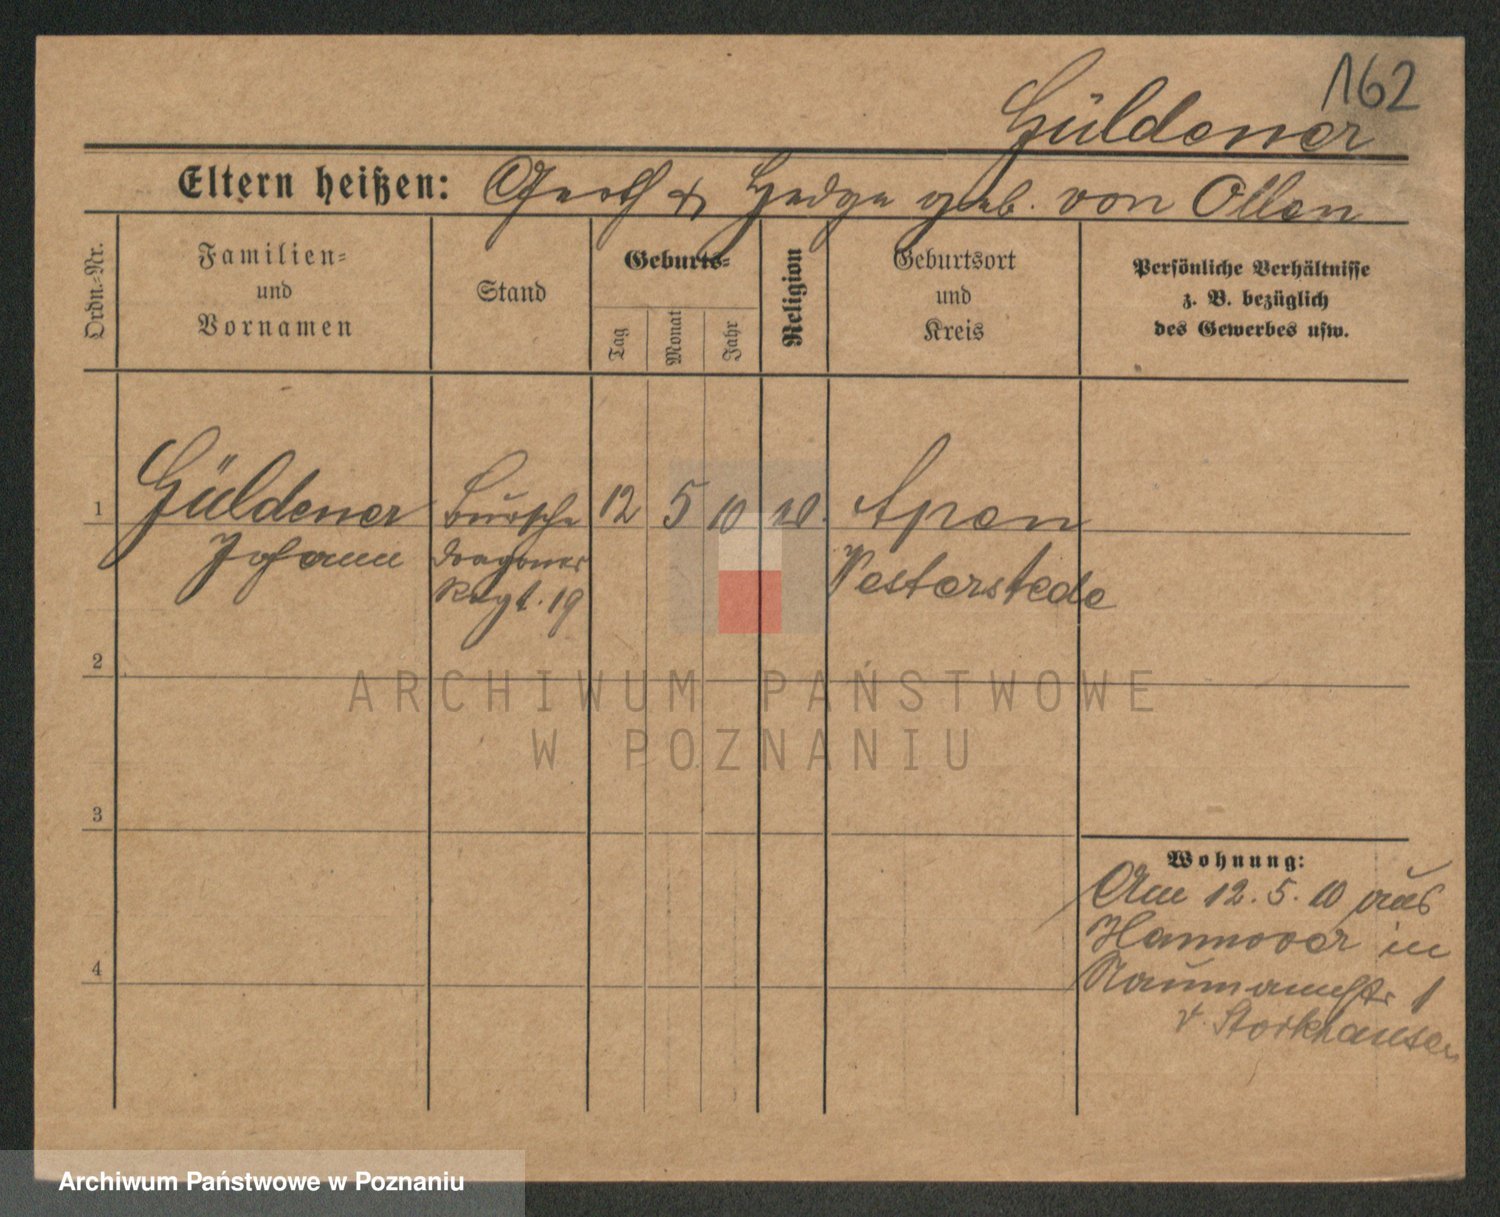 162
Güldener
Eltern heißen: Gerth & Hedge geb. von Ollen
Ordn.-Nr.
Familien-
und
Vornamen
Stand
Geburts-
Tag
Monat
Jahr
Religion
Geburtsort
und
Kreis
Persönliche Verhältnisse
z. B. bezüglich
des Gewerbes usw.
1 Güldener Bursche 12 5 10 Apen
Johann Dragoner Westerstede
Regt. 19
2
3
4
Wohnung:
Am 12. 5. 10 aus
Hannover in
Naumannstr 1
v. Storkhausen
ARCHIWUM PAŃSTWOWE
W POZNANIU
Archiwum Państwowe w Poznaniu